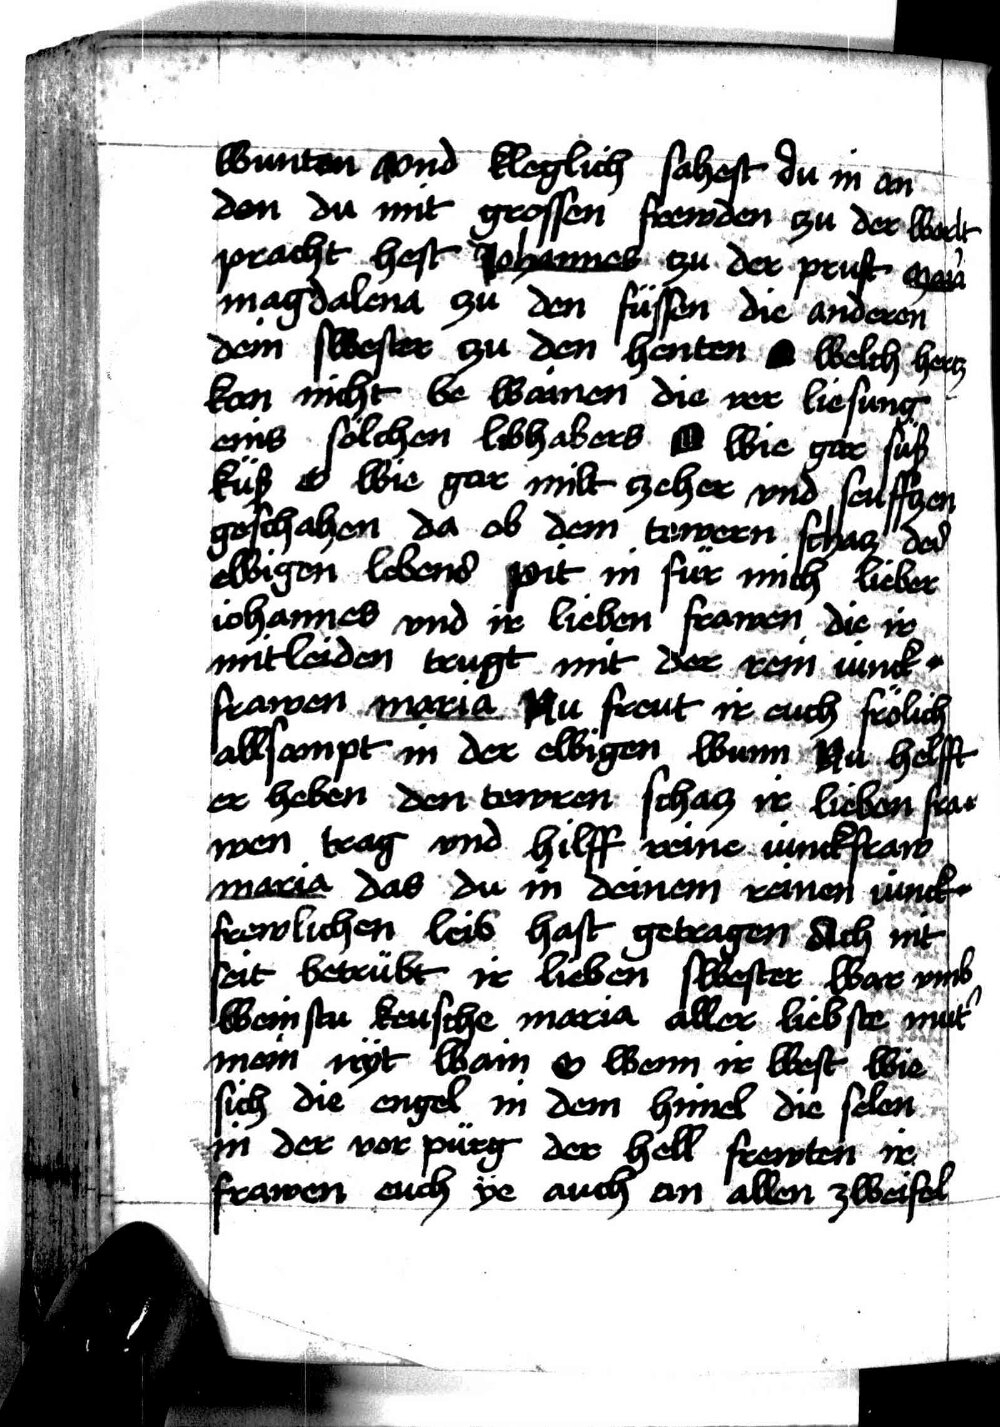 wunten vnd kleglich sahest du in an
den du mit grossen frewden zu der werlt
pracht hest Johannes zu der prust maria
magdalena zu den füssen die anderen
dein swester zu den henten O welch hertz
kan nicht be wainen die ver liesung
eins sölchen libhabers O wie gar süß
küß o wie gar milt zeher vnd seufftzen
geschahen da ob dem tewern schacz des
ewigen lebens pit in für mich lieber
iohannes vnd ir lieben frawen die ir
mitleiden trugt mit der rein iunck-
frawen maria Nu freut ir euch frölich
allsampt in der ewigen wunn Nu helfft
er heben den tewren schacz ir lieben fra-
wen trag vnd hilff reine iunckfraw
maria das du in deinem reinen iunck-
frewlichen leib hast getragen Ach nit
seit betrübt ir lieben swester war vmb
weinstu keusche maria aller liebste mut'
mein nyt wain o wenn ir west wie
sich die engel in dem himel die selen
in der vor pürg der hell frewten ir
frawen euch ye auch an allen zweifel